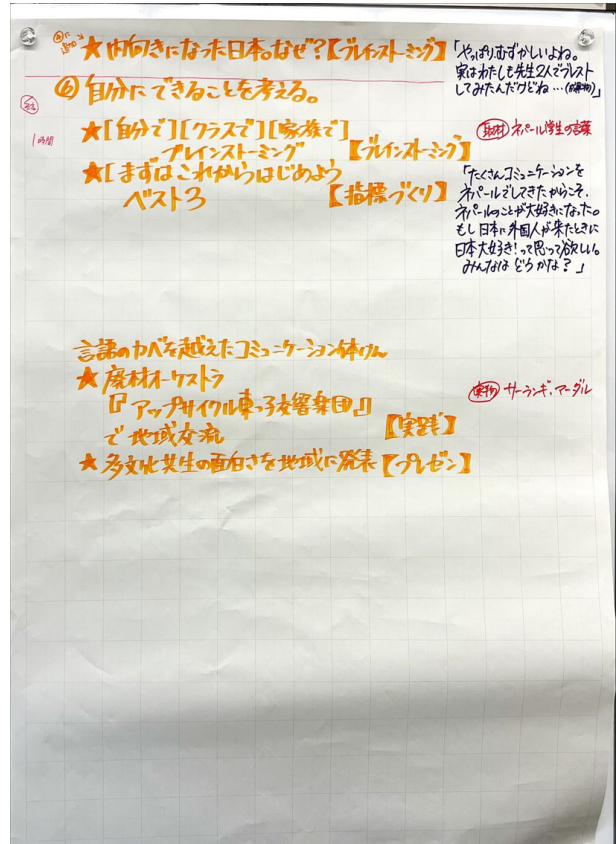 ④に
追加↓
★内向きになった日本。なぜ？【ブレインストーミング】
「やっぱりむずかしいよね。
実はわたしも先生2人でブレスト
してみたんだけどね…
⑥自分にできることを考える。
1時間
★[自分で][クラスで][家族で]
ブレインストーミング 【ブレインストーミング】
★[まずはこれからはじめよう
ベスト3 【指標づくり】
取材 ネパール学生の言葉
「たくさんコミュニケーションを
ネパールでしてきたからこそ、
ネパールのことが大好きになった。
もし日本に外国人が来たときに
日本大好き！って思って欲しい。
みんなはどうかな？」
言語のカベを越えたコミュニケーション体けん
★廃材オーケストラ
『アップサイクル東っ子交響楽団』
で地域交流 【実践】
実物 サーランギ、マーダル
★多文化共生の面白さを地域に発表【プレゼン】